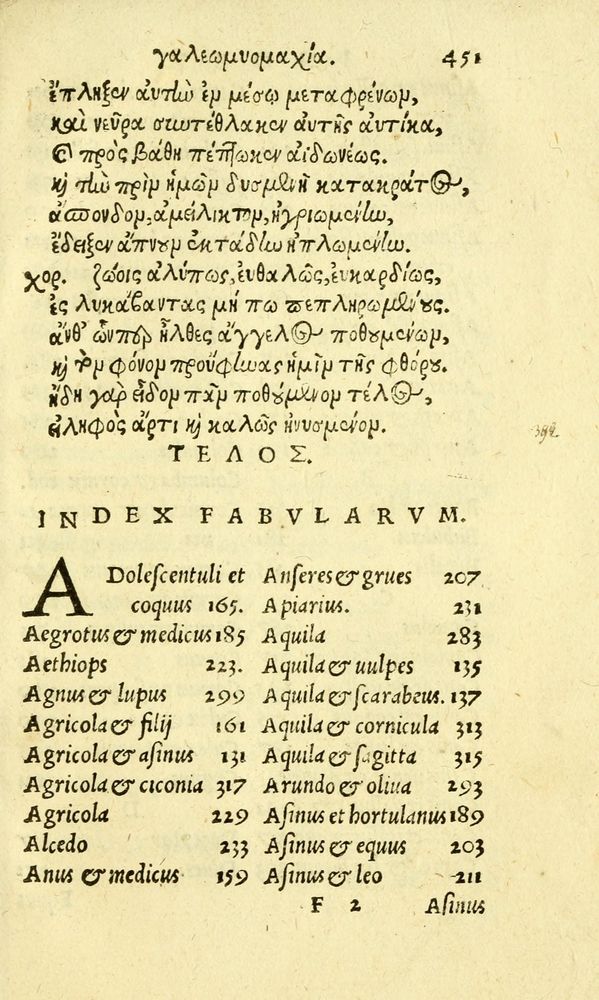 γαλεωμυομαχία. 451
ἔπληξεν αὐτὼ ἐν μέσῳ μεταφρένων,
καὶ νεῦρα συντέθλακεν αὐτῆς αὐτίκα,
καὶ πρὸς βάθη πέπτωκεν ἀϊδωνέως.
καὶ τὴν πρὶν ἡμῶν δυσμενῆ κατακράτος,
ἄσπονδον, ἀμείλικτον, ἠγριωμένην,
ἔδειξεν ἄπνουν ἐκτάδην ἡπλωμένην.
χορ. ζώοις ἀλύπως, εὐθαλῶς, εὐκαρδίως,
ἐς λυκάβαντας μή πω πεπληρωμένους.
ἀνθ᾽ ὧνπερ ἦλθες ἄγγελος ποθουμένων,
καὶ τὸν φόνον προὔφηνας ἡμῖν τῆς φθόρου.
ἤδη γὰρ εἶδον πᾶν ποθούμενον τέλος,
εἰληφὸς ἄρτι καὶ καλῶς ἠνυσμένον.
392.
ΤΕΛΟΣ.
INDEX FABVLARVM.
ADoleſcentuli et
coquus 165.
Aegrotus & medicus 185
Aethiops 223.
Agnus & lupus 299
Agricola & filij 161
Agricola & aſinus 131
Agricola & ciconia 317
Agricola 229
Alcedo 233
Anus & medicus 159
Anſeres & grues 207
Apiarius. 231
Aquila 283
Aquila & uulpes 135
Aquila & ſcarabeus. 137
Aquila & cornicula 313
Aquila & ſagitta 315
Arundo & oliua 293
Aſinus et hortulanus 189
Aſinus & equus 203
Aſinus & leo 211
F 2 Aſinus